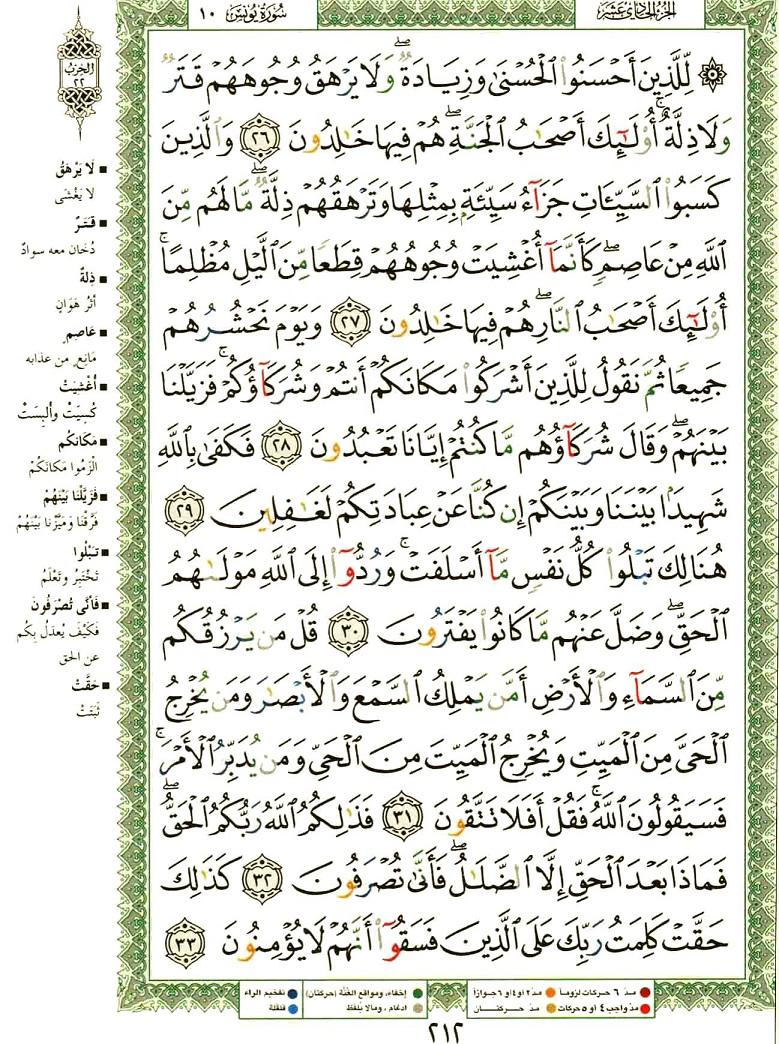 الجزء الحادي عشر
سورة يونس ١٠
۞ لِّلَّذِينَ أَحْسَنُوا۟ ٱلْحُسْنَىٰ وَزِيَادَةٌ ۖ وَلَا يَرْهَقُ وُجُوهَهُمْ قَتَرٌ
وَلَا ذِلَّةٌ ۚ أُو۟لَـٰٓئِكَ أَصْحَـٰبُ ٱلْجَنَّةِ ۖ هُمْ فِيهَا خَـٰلِدُونَ ٢٦ وَٱلَّذِينَ
كَسَبُوا۟ ٱلسَّيِّـَٔاتِ جَزَآءُ سَيِّئَةٍۭ بِمِثْلِهَا وَتَرْهَقُهُمْ ذِلَّةٌ ۖ مَّا لَهُم مِّنَ
ٱللَّهِ مِنْ عَاصِمٍ ۖ كَأَنَّمَآ أُغْشِيَتْ وُجُوهُهُمْ قِطَعًا مِّنَ ٱلَّيْلِ مُظْلِمًا ۚ
أُو۟لَـٰٓئِكَ أَصْحَـٰبُ ٱلنَّارِ ۖ هُمْ فِيهَا خَـٰلِدُونَ ٢٧ وَيَوْمَ نَحْشُرُهُمْ
جَمِيعًا ثُمَّ نَقُولُ لِلَّذِينَ أَشْرَكُوا۟ مَكَانَكُمْ أَنتُمْ وَشُرَكَآؤُكُمْ ۚ فَزَيَّلْنَا
بَيْنَهُمْ ۖ وَقَالَ شُرَكَآؤُهُم مَّا كُنتُمْ إِيَّانَا تَعْبُدُونَ ٢٨ فَكَفَىٰ بِٱللَّهِ
شَهِيدًۢا بَيْنَنَا وَبَيْنَكُمْ إِن كُنَّا عَنْ عِبَادَتِكُمْ لَغَـٰفِلِينَ ٢٩
هُنَالِكَ تَبْلُوا۟ كُلُّ نَفْسٍ مَّآ أَسْلَفَتْ ۚ وَرُدُّوٓا۟ إِلَى ٱللَّهِ مَوْلَىٰهُمُ
ٱلْحَقِّ ۖ وَضَلَّ عَنْهُم مَّا كَانُوا۟ يَفْتَرُونَ ٣٠ قُلْ مَن يَرْزُقُكُم
مِّنَ ٱلسَّمَآءِ وَٱلْأَرْضِ أَمَّن يَمْلِكُ ٱلسَّمْعَ وَٱلْأَبْصَـٰرَ وَمَن يُخْرِجُ
ٱلْحَىَّ مِنَ ٱلْمَيِّتِ وَيُخْرِجُ ٱلْمَيِّتَ مِنَ ٱلْحَىِّ وَمَن يُدَبِّرُ ٱلْأَمْرَ ۚ
فَسَيَقُولُونَ ٱللَّهُ ۚ فَقُلْ أَفَلَا تَتَّقُونَ ٣١ فَذَٰلِكُمُ ٱللَّهُ رَبُّكُمُ ٱلْحَقُّ ۖ
فَمَاذَا بَعْدَ ٱلْحَقِّ إِلَّا ٱلضَّلَـٰلُ ۖ فَأَنَّىٰ تُصْرَفُونَ ٣٢ كَذَٰلِكَ
حَقَّتْ كَلِمَتُ رَبِّكَ عَلَى ٱلَّذِينَ فَسَقُوٓا۟ أَنَّهُمْ لَا يُؤْمِنُونَ ٣٣
الحزب
٢٢
■ لَا يَرْهَقُ
لا يَغْشَى
■ قَتَرٌ
دُخَان معه سوادٌ
■ ذِلَّةٌ
أثَرُ هَوَانٍ
■ عَاصِمٍ
مَانِعٍ من عذابه
■ أُغْشِيَتْ
كُسِيَتْ وأُلبِسَتْ
■ مَكَانَكُمْ
الْزَمُوا مَكَانَكُمْ
■ فَزَيَّلْنَا بَيْنَهُمْ
فَرَّقْنَا وَمَيَّزْنا بَيْنَهُمْ
■ تَبْلُوا
تَخْتَبِرُ وتَعْلَمُ
■ فَأَنَّى تُصْرَفُونَ
فَكَيْفَ يُعدَلُ بِكُم
عن الحق
■ حَقَّتْ
ثَبَتَتْ
مدّ ٦ حركات لزوماً ● مدّ ٢ أو ٤ أو ٦ جوازاً
مدّ واجب ٤ أو ٥ حركات ● مدّ حركتان
إخفاء، ومواقع الغُنَّة (حركتان)
ادغام، ومالا يُلفَظ
تفخيم الراء
قلقلة
٢١٢